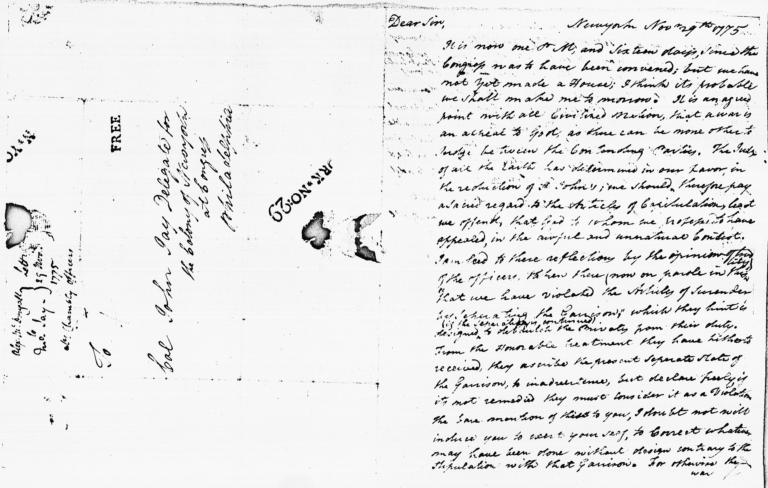 FREE
Col John Jay Delegate for
the Colony of Newyork
at Congress
Philadelphia
To
Alexr McDougall
to
Jno. Jay
29 Novr. 1775
N.YORK. NOV. 29
Dear Sir,
Newyork Novr 29th 1775.
It is now one P.M, and Sixteen days, since the
Congress was to have been convened; but we have
not yet made a House; I think its probable
we shall make one to morrow. It is an agreed
point with all Civilized Nations, that a war is
an appeal to God, as there can be none other to
Judge between the Contending Parties. The Judge
of all the Earth has determined in our favor, in
the reduction of St John's; we should, therefore pay
a sacred regard to the Articles of Capitulation, lest
we offend, that God to whom we profess to have
appealed, in the awful and unnatural Contest.
I am led to these reflections by the opinion of
of the officers, taken there, now on parole in this
that we have violated the Articles of Surrender
by separating the Garrison; which they hint is
(if the separation is continued)
designed to debauch the Privates from their duty.
From the Honorable treatment they have hitherto
received, they ascribe the present seperate state of
the Garrison, to inadvertence, but declare freely if
its not remedied they must consider it as a Violation
the bare mention of this to you, I doubt not will
induce you to exert your self, to Correct whatever
may have been done without design contrary to the
Stipulation with that Garrison. For otherwise the
war